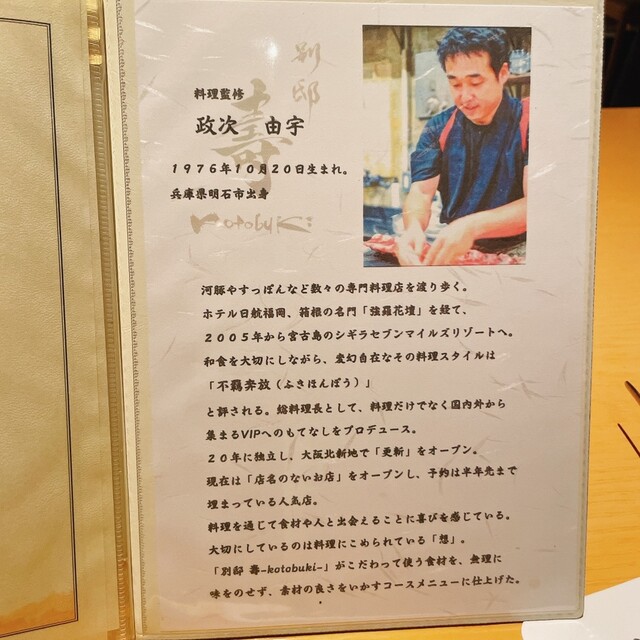 別邸
壽
Kotobuki
料理監修
政次　由宇
１９７６年１０月２０日生まれ。
兵庫県明石市出身
河豚やすっぽんなど数々の専門料理店を渡り歩く。
ホテル日航福岡、箱根の名門「強羅花壇」を経て、
２００５年から宮古島のシギラセブンマイルズリゾートへ。
和食を大切にしながら、変幻自在なその料理スタイルは
「不羈奔放（ふきほんぽう）」
と評される。総料理長として、料理だけでなく国内外から
集まるVIPへのもてなしをプロデュース。
２０年に独立し、大阪北新地で「更新」をオープン。
現在は「店名のないお店」をオープンし、予約は半年先まで
埋まっている人気店。
料理を通じて食材や人と出会えることに喜びを感じている。
大切にしているのは料理にこめられている「想」。
「別邸 壽-kotobuki-」がこだわって使う食材を、無理に
味をのせず、素材の良さをいかすコースメニューに仕上げた。